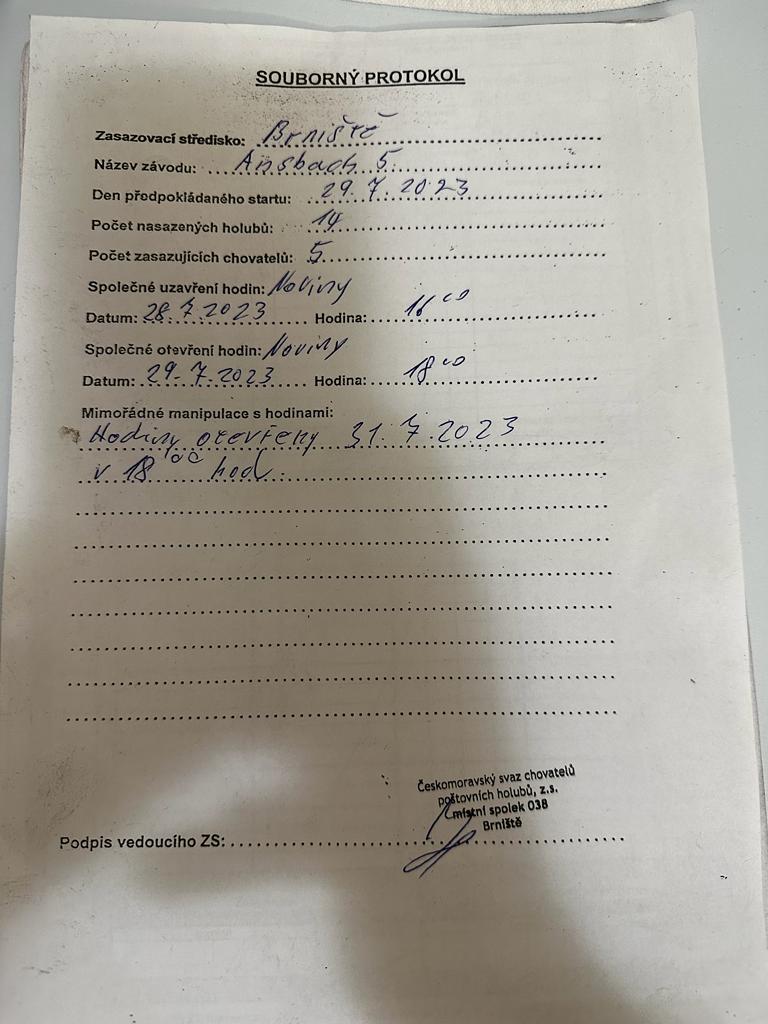 SOUBORNÝ PROTOKOL
Zasazovací středisko: Brniště
Název závodu: Ansbach 5.
Den předpokládaného startu: 29.7.2023
Počet nasazených holubů: 14
Počet zasazujících chovatelů: 5
Společné uzavření hodin: Noviny
Datum: 28.7.2023 Hodina: 16 00
Společné otevření hodin: Noviny
Datum: 29.7.2023 Hodina: 18 00
Mimořádné manipulace s hodinami:
Hodiny otevřeny 31.7.2023
v 18 00 hod.
Českomoravský svaz chovatelů
poštovních holubů, z.s.
místní spolek 038
Brniště
Podpis vedoucího ZS: